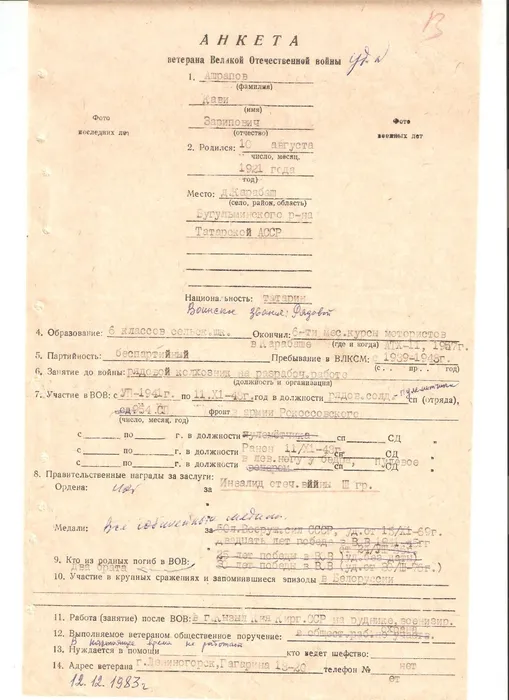 13
АНКЕТА
ветерана Великой Отечественной войны уд. л
1. Ашрапов
(фамилия)
Кави
(имя)
Фото последних лет
Зарипович
(отчество)
Фото военных лет
2. Родился: 10 августа
число, месяц,
1921 года
год)
Место: д.Карабаш
(село, район, область)
Бугульминского р-на
Татарской АССР
Национальность: татарин
Воинское звание: Рядовой
4. Образование: 6 классов сельск.шк. Окончил: 6-ти мес.курсы мотористов
в Карабаше (где и когда)
5. Партийность: беспартийный Пребывание в ВЛКСМ: с 1939-1948г.
(с .. пр .. год)
6. Занятие до войны: рядовой колхозник на разрабоч.работе
(должность и организация)
пулеметчик
7. Участие в ВОВ: с УП-1941г. по 11.XI-43г год в должности рядов.солд. сп (отряда),
сд фронт армии Рокоссовского
(число, месяц, год)
с по г. в должности пулемётчика сп СД
с по г. в должности Ранен 11/XI-43г. сп СД
в лев.ногу у бедра, пулевое
с по г. в должности сп СД
8. Правительственные награды за заслуги:
Ордена: нет за Инвалид отеч.войны III гр.
Медали: Все юбилейные медали. за 50л.Вооруж.сил СССР, уд.от 14/XI-69г.
двадцать лет победы в В.В 1941-45гг
25 лет победы в В.В (уд.без даты)
9. Кто из родных погиб в ВОВ: 30 лет победы в В.В
Два брата
10. Участие в крупных сражениях и запомнившиеся эпизоды в Белоруссии
11. Работа (занятие) после ВОВ: в г. Кирг.ССР на руднике, военизир.
охрана
12. Выполняемое ветераном общественное поручение: в общест.работе
В настоящее время не работает
13. Нуждается в помощи кто ведет шефство:
нет
14. Адрес ветерана г.Лениногорск, Гагарина 13-20 телефон № нет
12.12.1983г